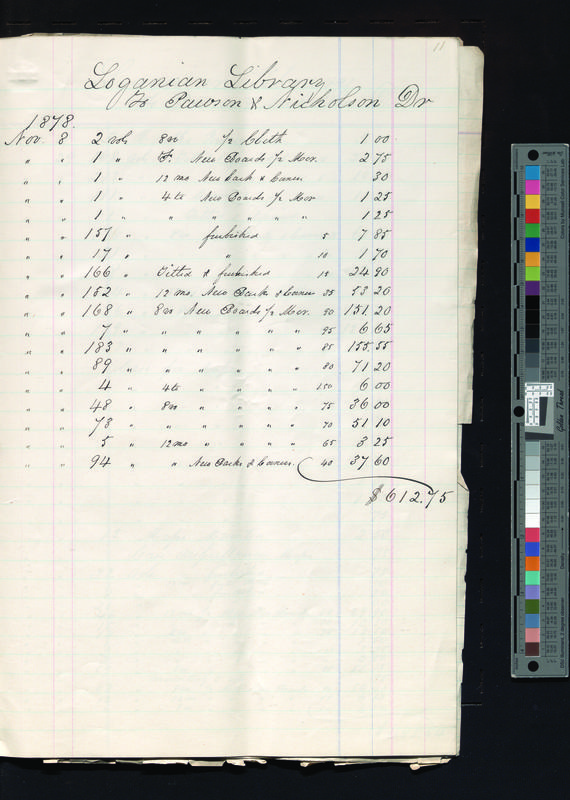 11
Loganian Library
To Pawson & Nicholson Dr
1878.
Nov. 8 2 vols 8vo 1/2 Cloth 1 00
" " 1 " F. New Boards 1/2 Mor. 2 75
" " 1 " 12 mo New Back & Corners 30
" " 1 " 4to New Boards 1/2 Mor 1 25
" " 1 " " " " " " 1 25
" " 157 " furbished 5 7 85
" " 17 " " 10 1 70
" " 166 " Titled & furbished 15 24 90
" " 152 " 12 mo. New Backs & Corners 35 53 20
" " 168 " 8vo New Boards 1/2 Mor. 90 151 20
" " 7 " " " " " " 95 6 65
" " 183 " " " " " " 85 155 55
" " 89 " " " " " " 80 71 20
" " 4 " 4to " " " " 150 6 00
" " 48 " 8vo " " " " 75 36 00
" " 73 " " " " " " 70 51 10
" " 5 " 12mo " " " " 65 3 25
" " 94 " " New Backs & Corners. 40 37 60
$612.75